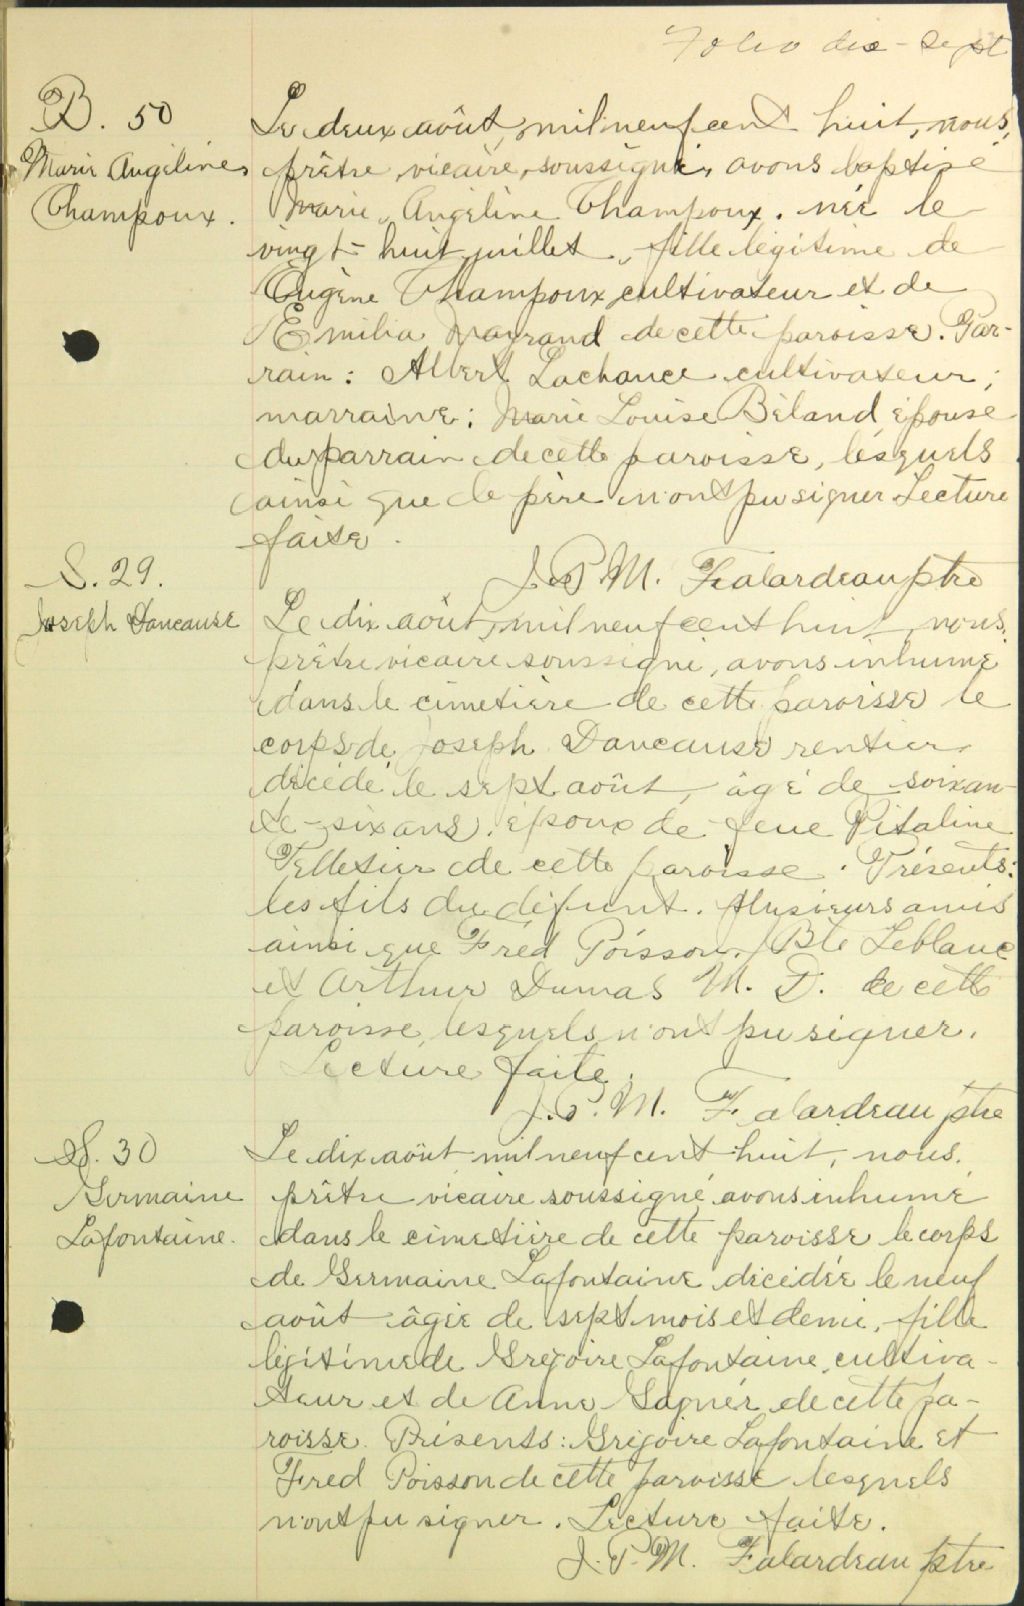 Folio dix-sept
B. 50
Marie Angéline
Champoux.
Le deux août, mil neuf cent huit, nous,
prêtre, vicaire, soussigné, avons baptisé
Marie, Angéline Champoux, née le
vingt-huit juillet, fille légitime de
Eugène Champoux, cultivateur et de
Emilia Mayrand de cette paroisse. Par-
rain: Albert Lachance cultivateur;
marraine: Marie Louise Béland épouse
du parrain de cette paroisse, lesquels
ainsi que le père n'ont pu signer. Lecture
faite.
J. P. M. Falardeau ptre
S. 29.
Joseph Dancause
Le dix août, mil neuf cent huit, nous,
prêtre vicaire soussigné, avons inhumé
dans le cimetière de cette paroisse le
corps de Joseph Dancause rentier
décédé le sept août, âgé de soixan-
te-six ans, époux de feue Vitaline
Pelletier de cette paroisse. Présents:
les fils du défunt. Plusieurs amis
ainsi que Fréd Poisson, Bte Leblanc
et Arthur Dumas M. D. de cette
paroisse, lesquels n'ont pu signer.
Lecture faite.
J. P. M. Falardeau ptre
S. 30
Germaine
Lafontaine.
Le dix août mil neuf cent huit, nous,
prêtre vicaire soussigné, avons inhumé
dans le cimetière de cette paroisse le corps
de Germaine Lafontaine décédée le neuf
août âgée de sept mois et demi, fille
légitime de Grégoire Lafontaine, cultiva-
teur et de Anna Gagner de cette pa-
roisse. Présents: Grégoire Lafontaine et
Fred Poisson de cette paroisse lesquels
n'ont pu signer. Lecture faite.
J. P. M. Falardeau ptre